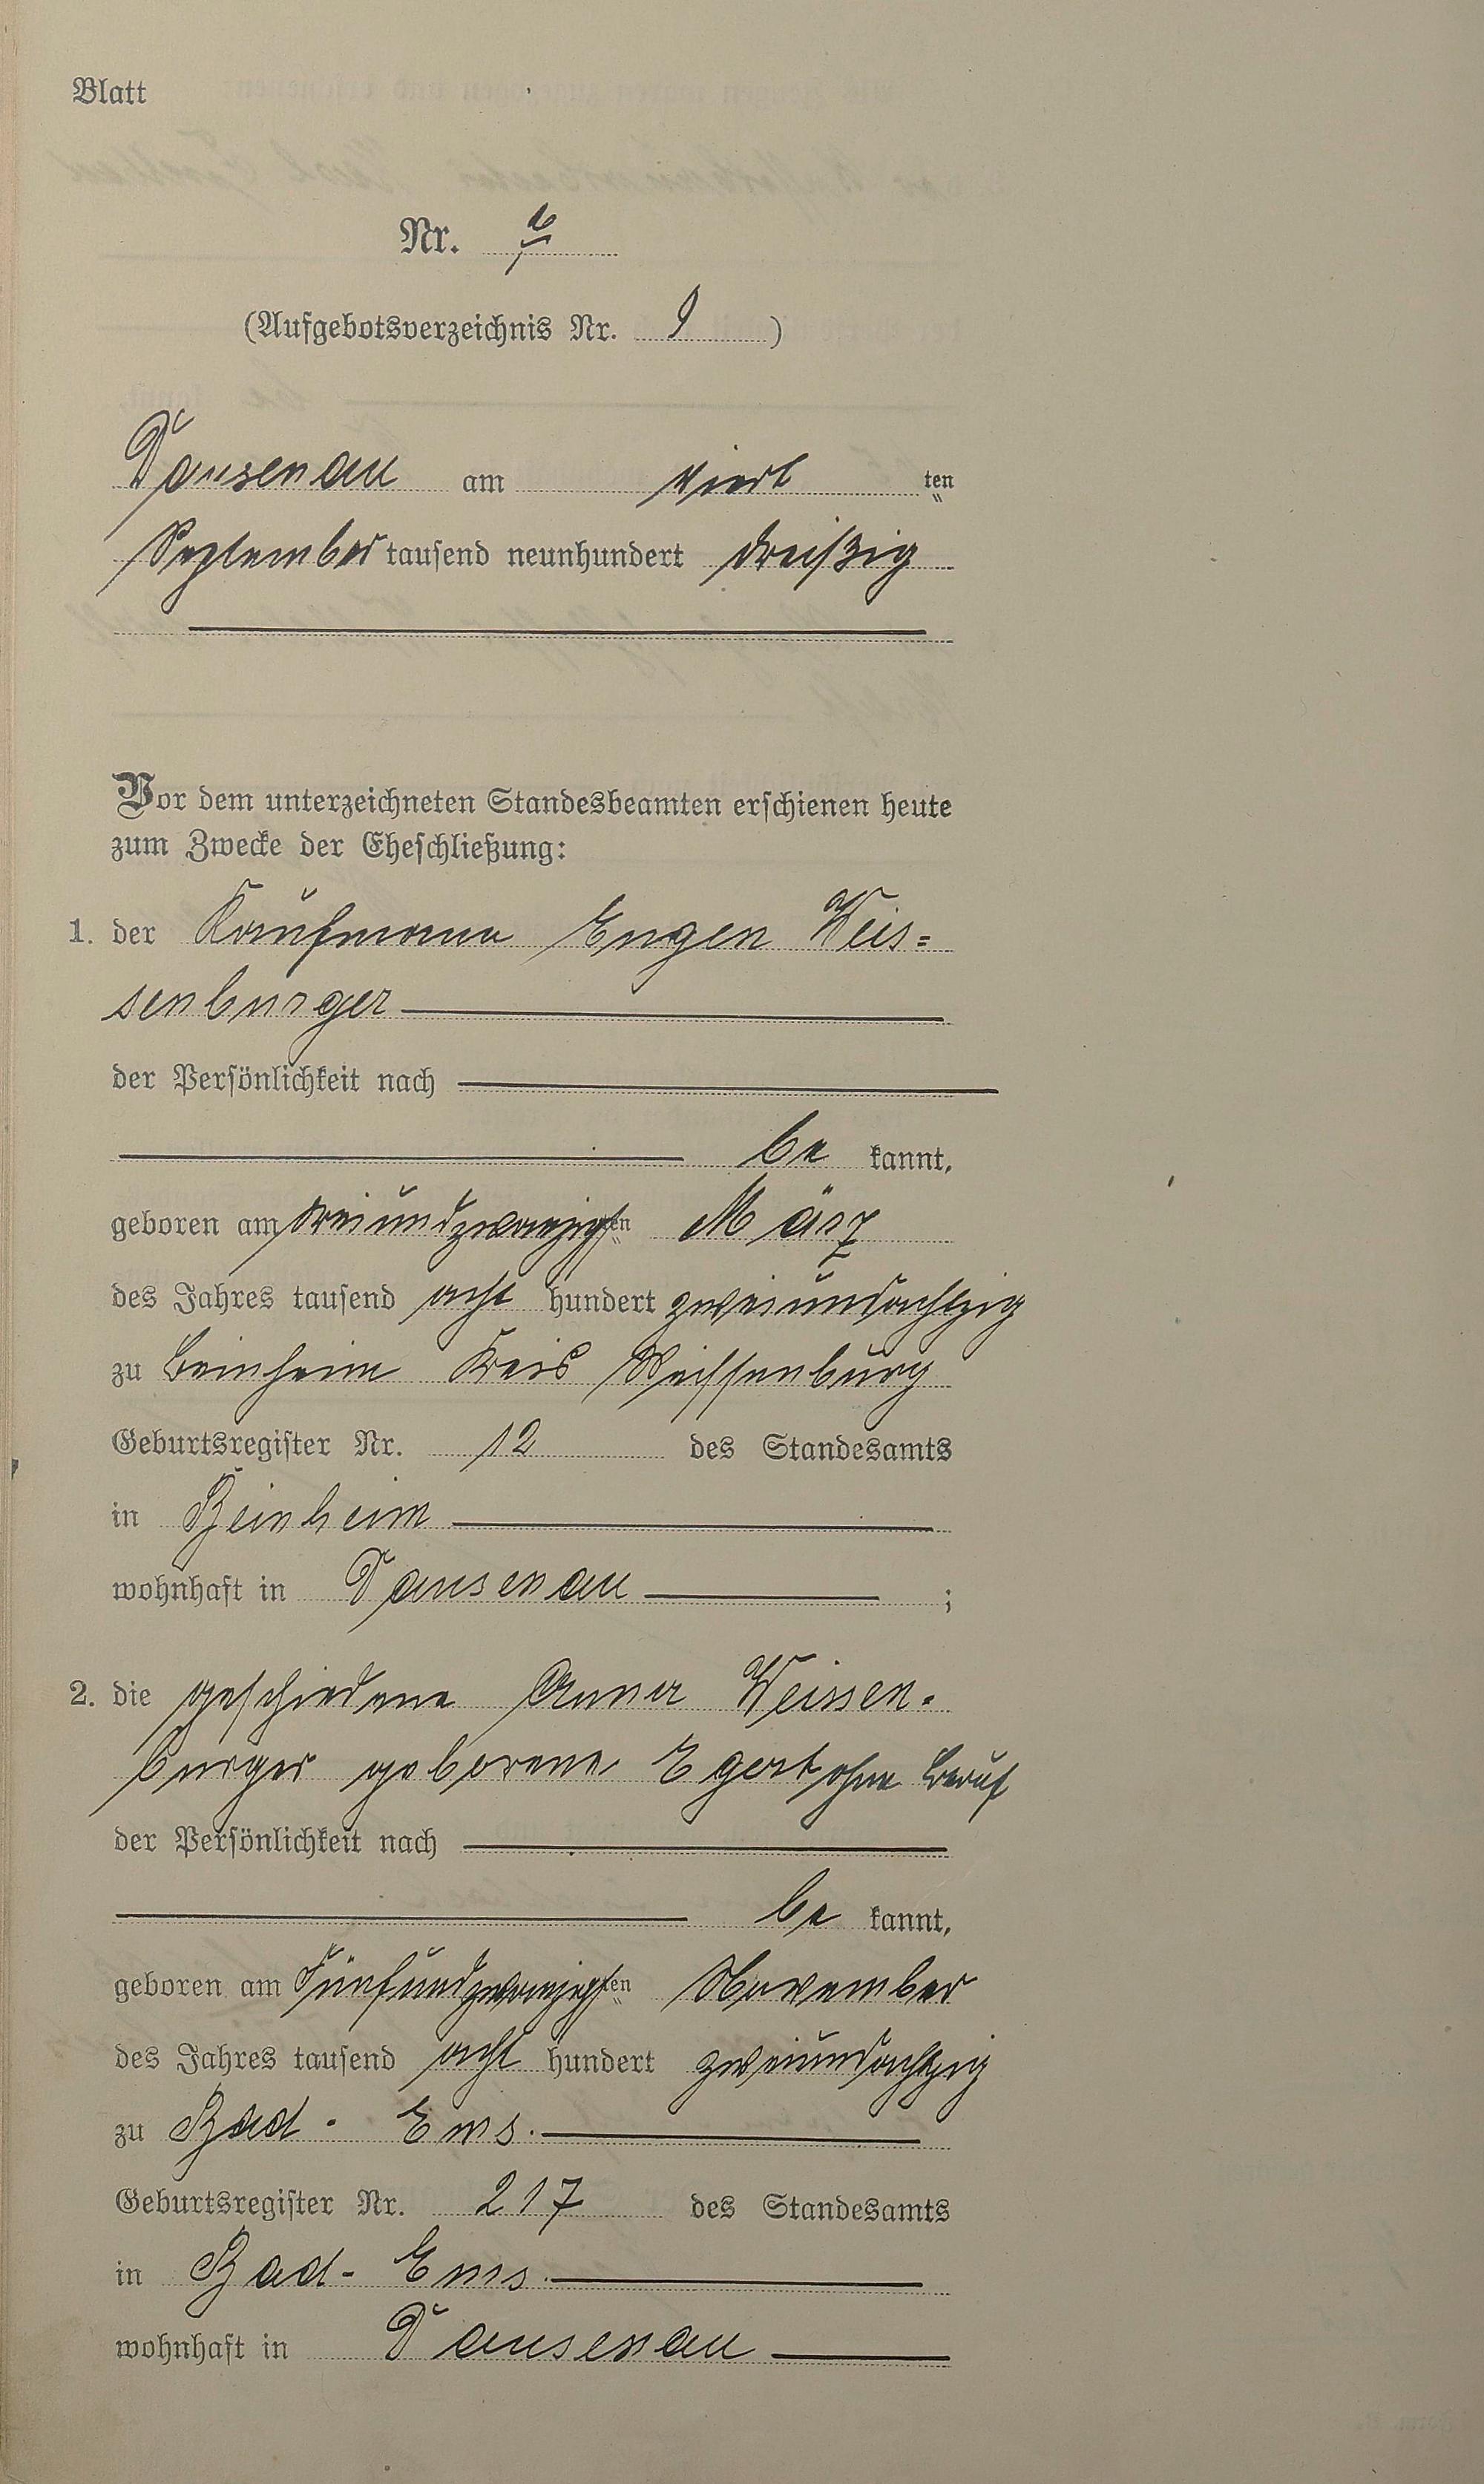 Blatt
Nr.
(Aufgebotsverzeichnis Nr. 9)
Dausenau am viert ten
September tausend neunhundert dreißig
Vor dem unterzeichneten Standesbeamten erschienen heute
zum Zwecke der Eheschließung:
1. der Kaufmann Eugen Weis=
senburger
der Persönlichkeit nach
be kannt,
geboren am dreiundzwanzigsten März
des Jahres tausend acht hundert zweiundachtzig
zu Beinheim Kreis Weissenburg
Geburtsregister Nr. 12 des Standesamts
in Beinheim
wohnhaft in Dausenau ;
2. die geschiedene Anna Weissen-
burger geborene Egert ohne Beruf
der Persönlichkeit nach
be kannt,
geboren am fünfundzwanzigsten November
des Jahres tausend acht hundert zweiundachtzig
zu Bad-Ems.
Geburtsregister Nr. 217 des Standesamts
in Bad-Ems.
wohnhaft in Dausenau